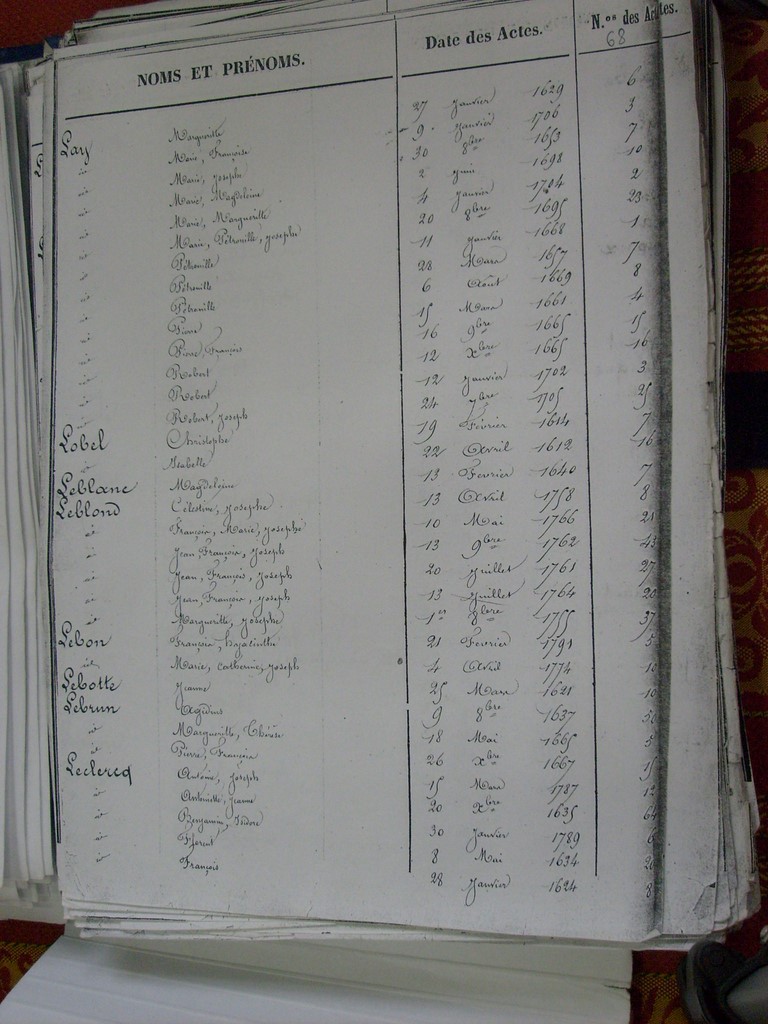 NOMS ET PRÉNOMS. Date des Actes. N.os des Actes.
68
Lay Marguerite 27 Janvier 1629 6
id Marie, Françoise 9 Janvier 1706 3
id Marie, Joseph 30 8bre 1653 7
id Marie, Magdeleine 2 Juin 1698 10
id Marie, Marguerite 4 Janvier 1704 2
id Marie, Pétronille, Josephe 20 8bre 1695 23
id Pétronille 11 Janvier 1668 1
id Pétronille 28 Mars 1657 7
id Pétronille 6 Août 1669 8
id Pierre 15 Mars 1661 4
id Pierre, François 16 9bre 1665 15
id Robert 12 Xbre 1665 16
id Robert 12 Janvier 1702 3
id Robert, Joseph 24 7bre 1705 25
Lobel Christophe 19 Fevrier 1614 7
Isabelle 22 Avril 1612 16
Leblanc Magdeleine 13 Fevrier 1640 7
Leblond Célestine, Josephe 13 Avril 1758 8
id François, Marie, Josephe 10 Mai 1766 21
id Jean François, Joseph 13 9bre 1762 43
id Jean, François, Joseph 20 Juillet 1761 27
id Jean, François, Joseph 13 Juillet 1764 20
id Marguerite, Josephe 1er 8bre 1755 37
Lebon François, hyacinthe 21 Fevrier 1791 5
id Marie, Catherine, Joseph 4 Avril 1774 10
Lebotte Jeanne 25 Mars 1621 10
Lebrun Egidius 9 8bre 1637
id Marguerite, Thérèse 18 Mai 1665 5
id Pierre, François 26 Xbre 1667 15
Leclercq Antoine, Joseph 15 Mars 1787 12
id Antoinette, Jeanne 20 Xbre 1635 64
id Benjamin, Isidore 30 Janvier 1789 6
id Florent 8 Mai 1634 20
id François 28 Janvier 1624 8